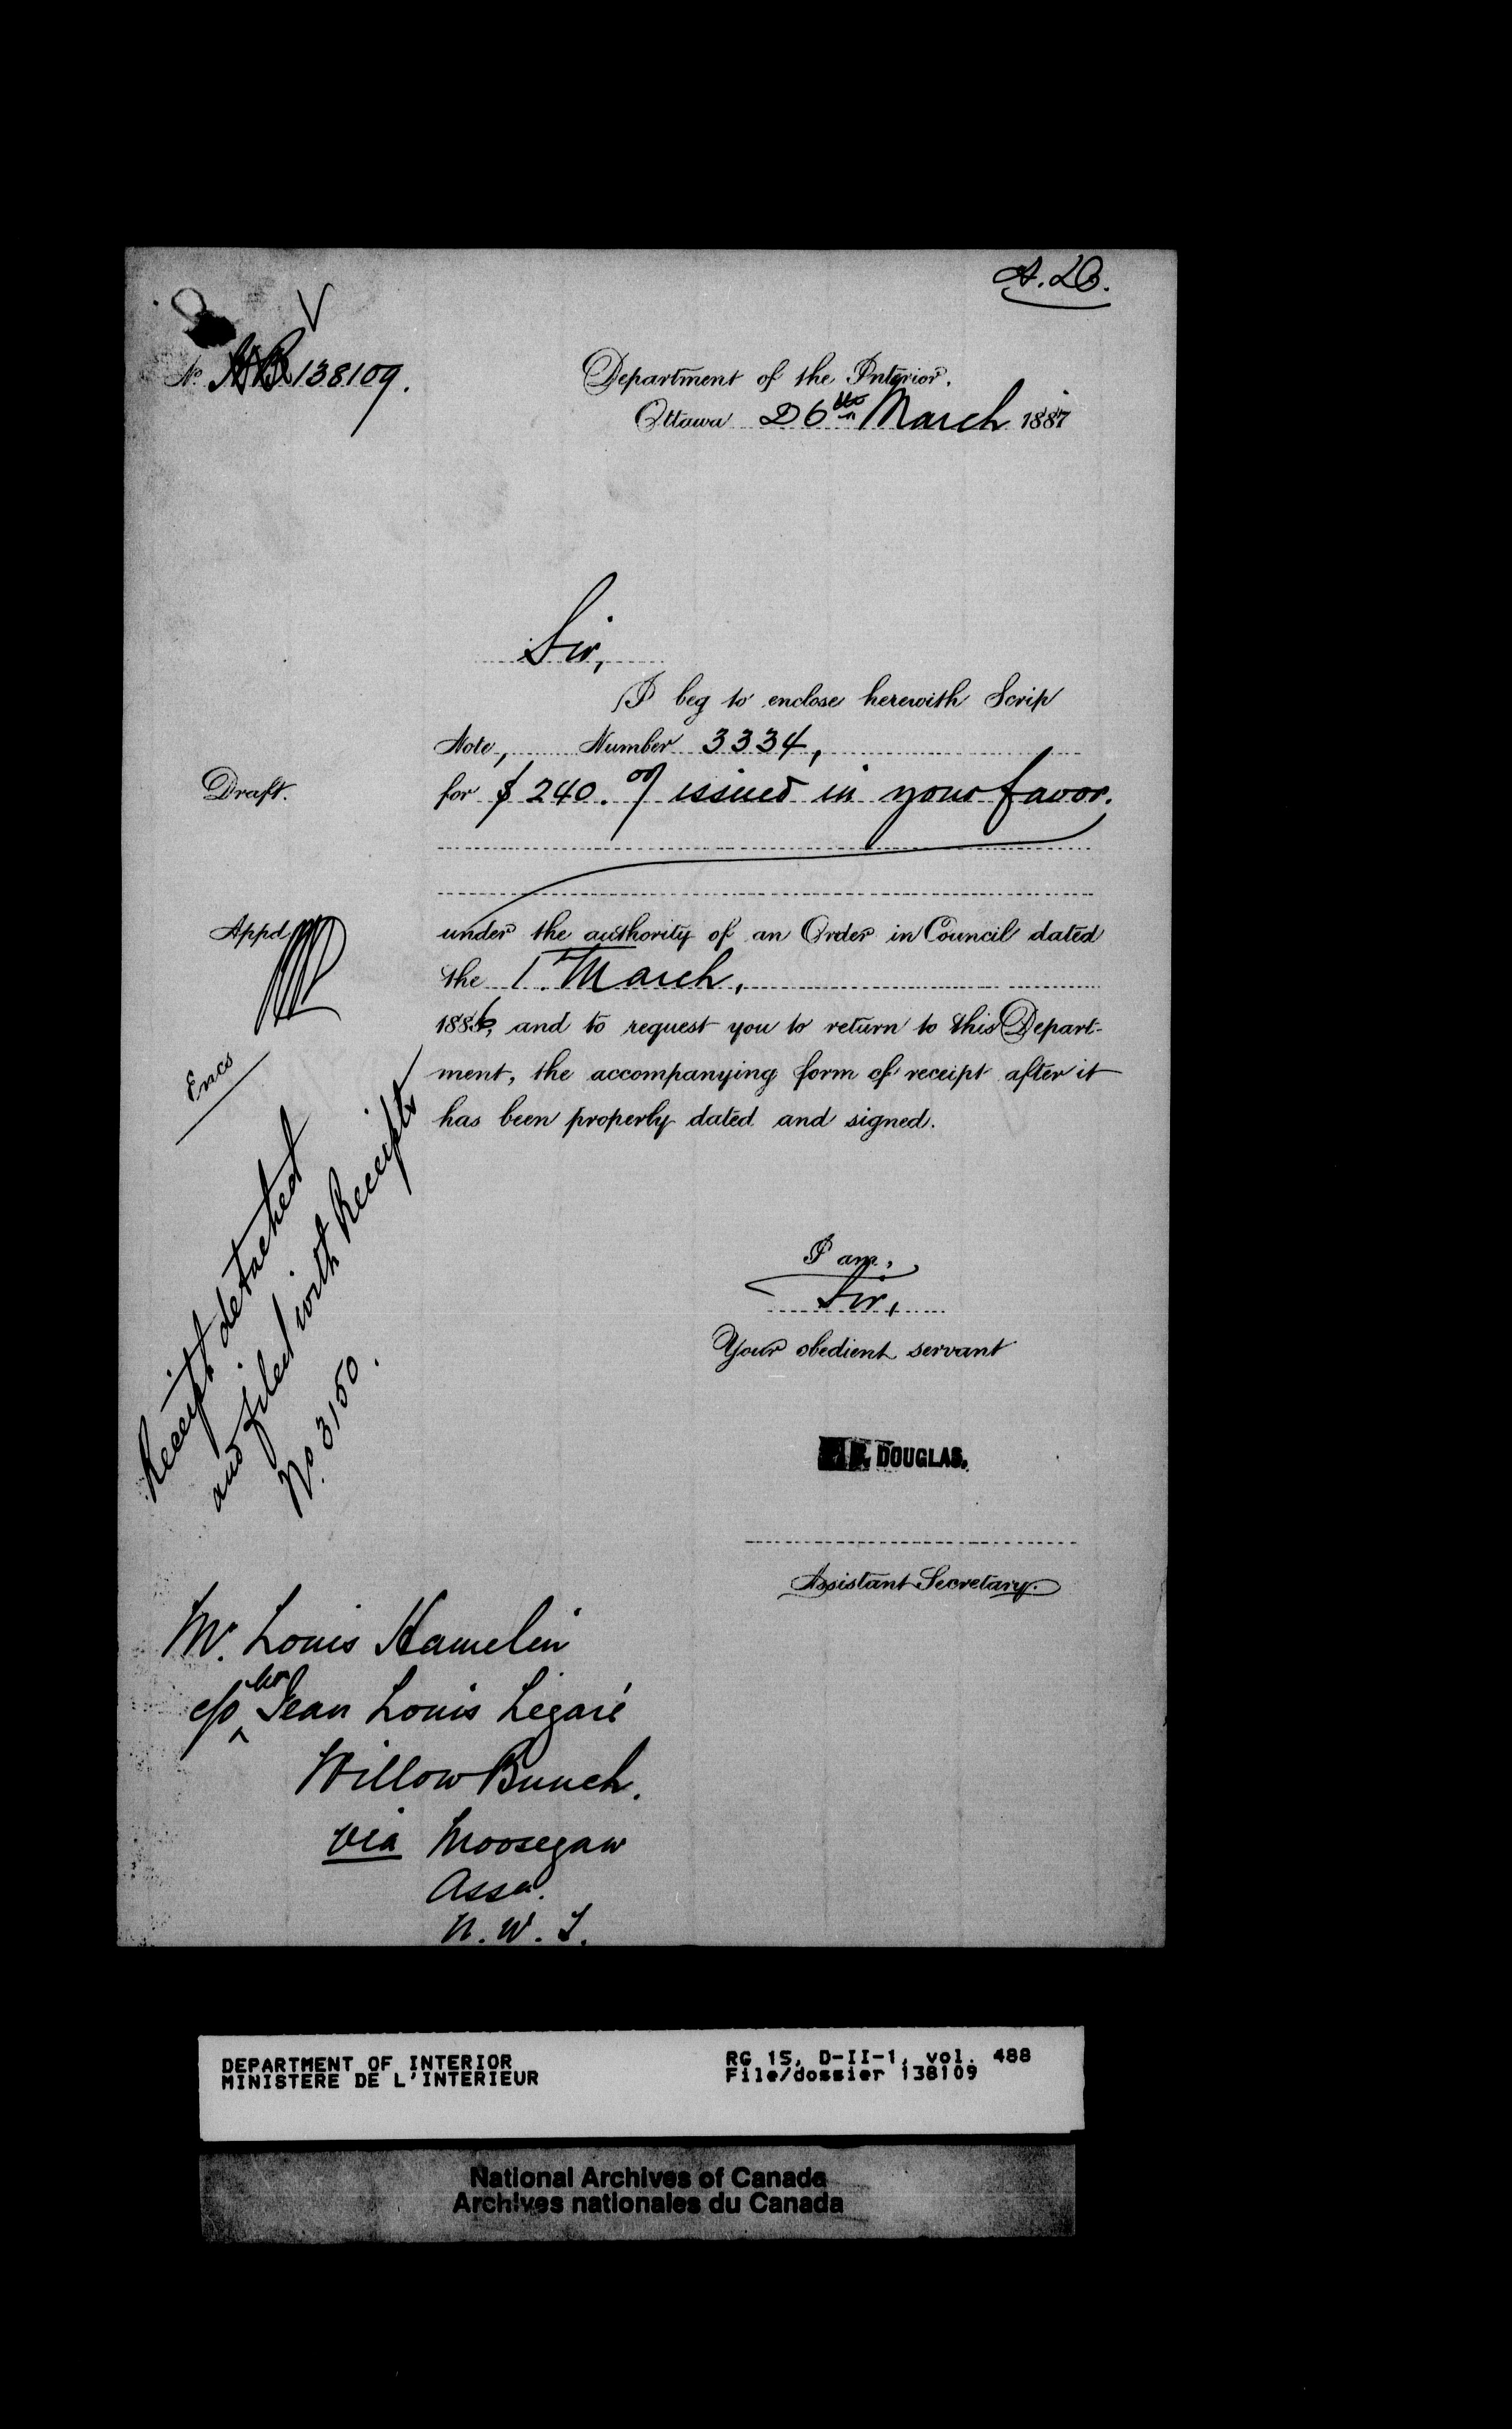 A. D.
No HB 138109.
Department of the Interior.
Ottawa 26th March 1887
Sir,
I beg to enclose herewith Scrip
Note, Number 3334,
Draft.
for $240.00/ issued in your favor.
Appd
under the authority of an Order in Council dated
the 1st March,
1886, and to request you to return to this Depart-
Encs
ment, the accompanying form of receipt after it
has been properly dated and signed.
Receipt detached
and filed with Receipts
No. 3150.
I am,
Sir,
Your obedient servant
DOUGLAS.
Assistant Secretary.
Mr. Louis Hamelin
c/o Mr Jean Louis Légaré
Willow Bunch.
via Moosejaw
Assa.
N. W. T.
DEPARTMENT OF INTERIOR
MINISTERE DE L'INTERIEUR
RG 15, D-II-1, vol. 488
File/dossier 138109
National Archives of Canada
Archives nationales du Canada